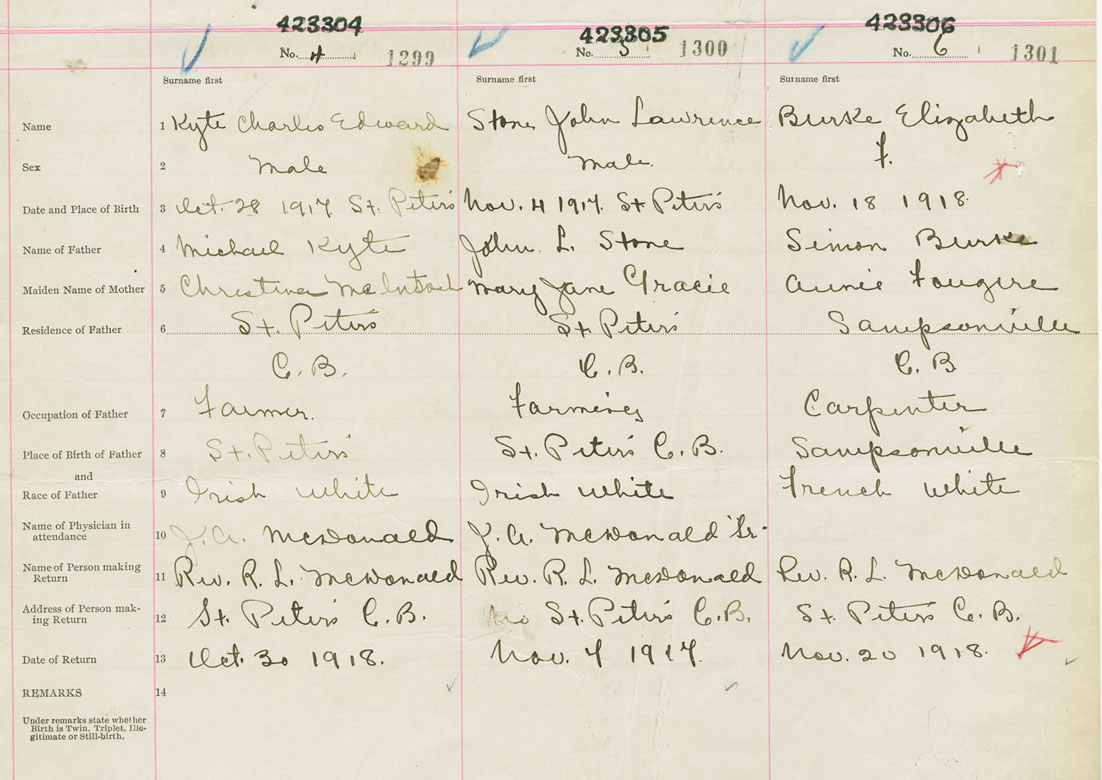 423304 423305 423306
No. 4 1299 No. 5 1300 No. 6 1301
Surname first Surname first Surname first
Name 1 Kyte Charles Edward Stone John Lawrence Burke Elizabeth
Sex 2 Male Male. F.
Date and Place of Birth 3 Oct. 28 1917 St. Peter's Nov. 4 1917. St Peter's Nov. 18 1918.
Name of Father 4 Michael Kyte John. L. Stone Simon Burke
Maiden Name of Mother 5 Christina McIntosh Mary Jane Gracie Annie Fougere
Residence of Father 6 St. Peter's St Peter's Sampsonville
C.B. C.B. C.B
Occupation of Father 7 Farmer. Farming Carpenter
Place of Birth of Father 8 St. Peter's St. Peter's C.B. Sampsonville
and
Race of Father 9 Irish White Irish White French White
Name of Physician in
attendance 10 J.A. McDonald J.A. McDonald
Name of Person making
Return 11 Rev. R. L. McDonald Rev. R. L. McDonald Rev. R. L. McDonald
Address of Person mak-
ing Return 12 St. Peter's C.B. St. Peter's C.B. St. Peter's C.B.
Date of Return 13 Oct. 30 1918. Nov. 7 1917. Nov. 20 1918.
REMARKS 14
Under remarks state whether
Birth is Twin, Triplet, Ille-
gitimate or Still-birth.